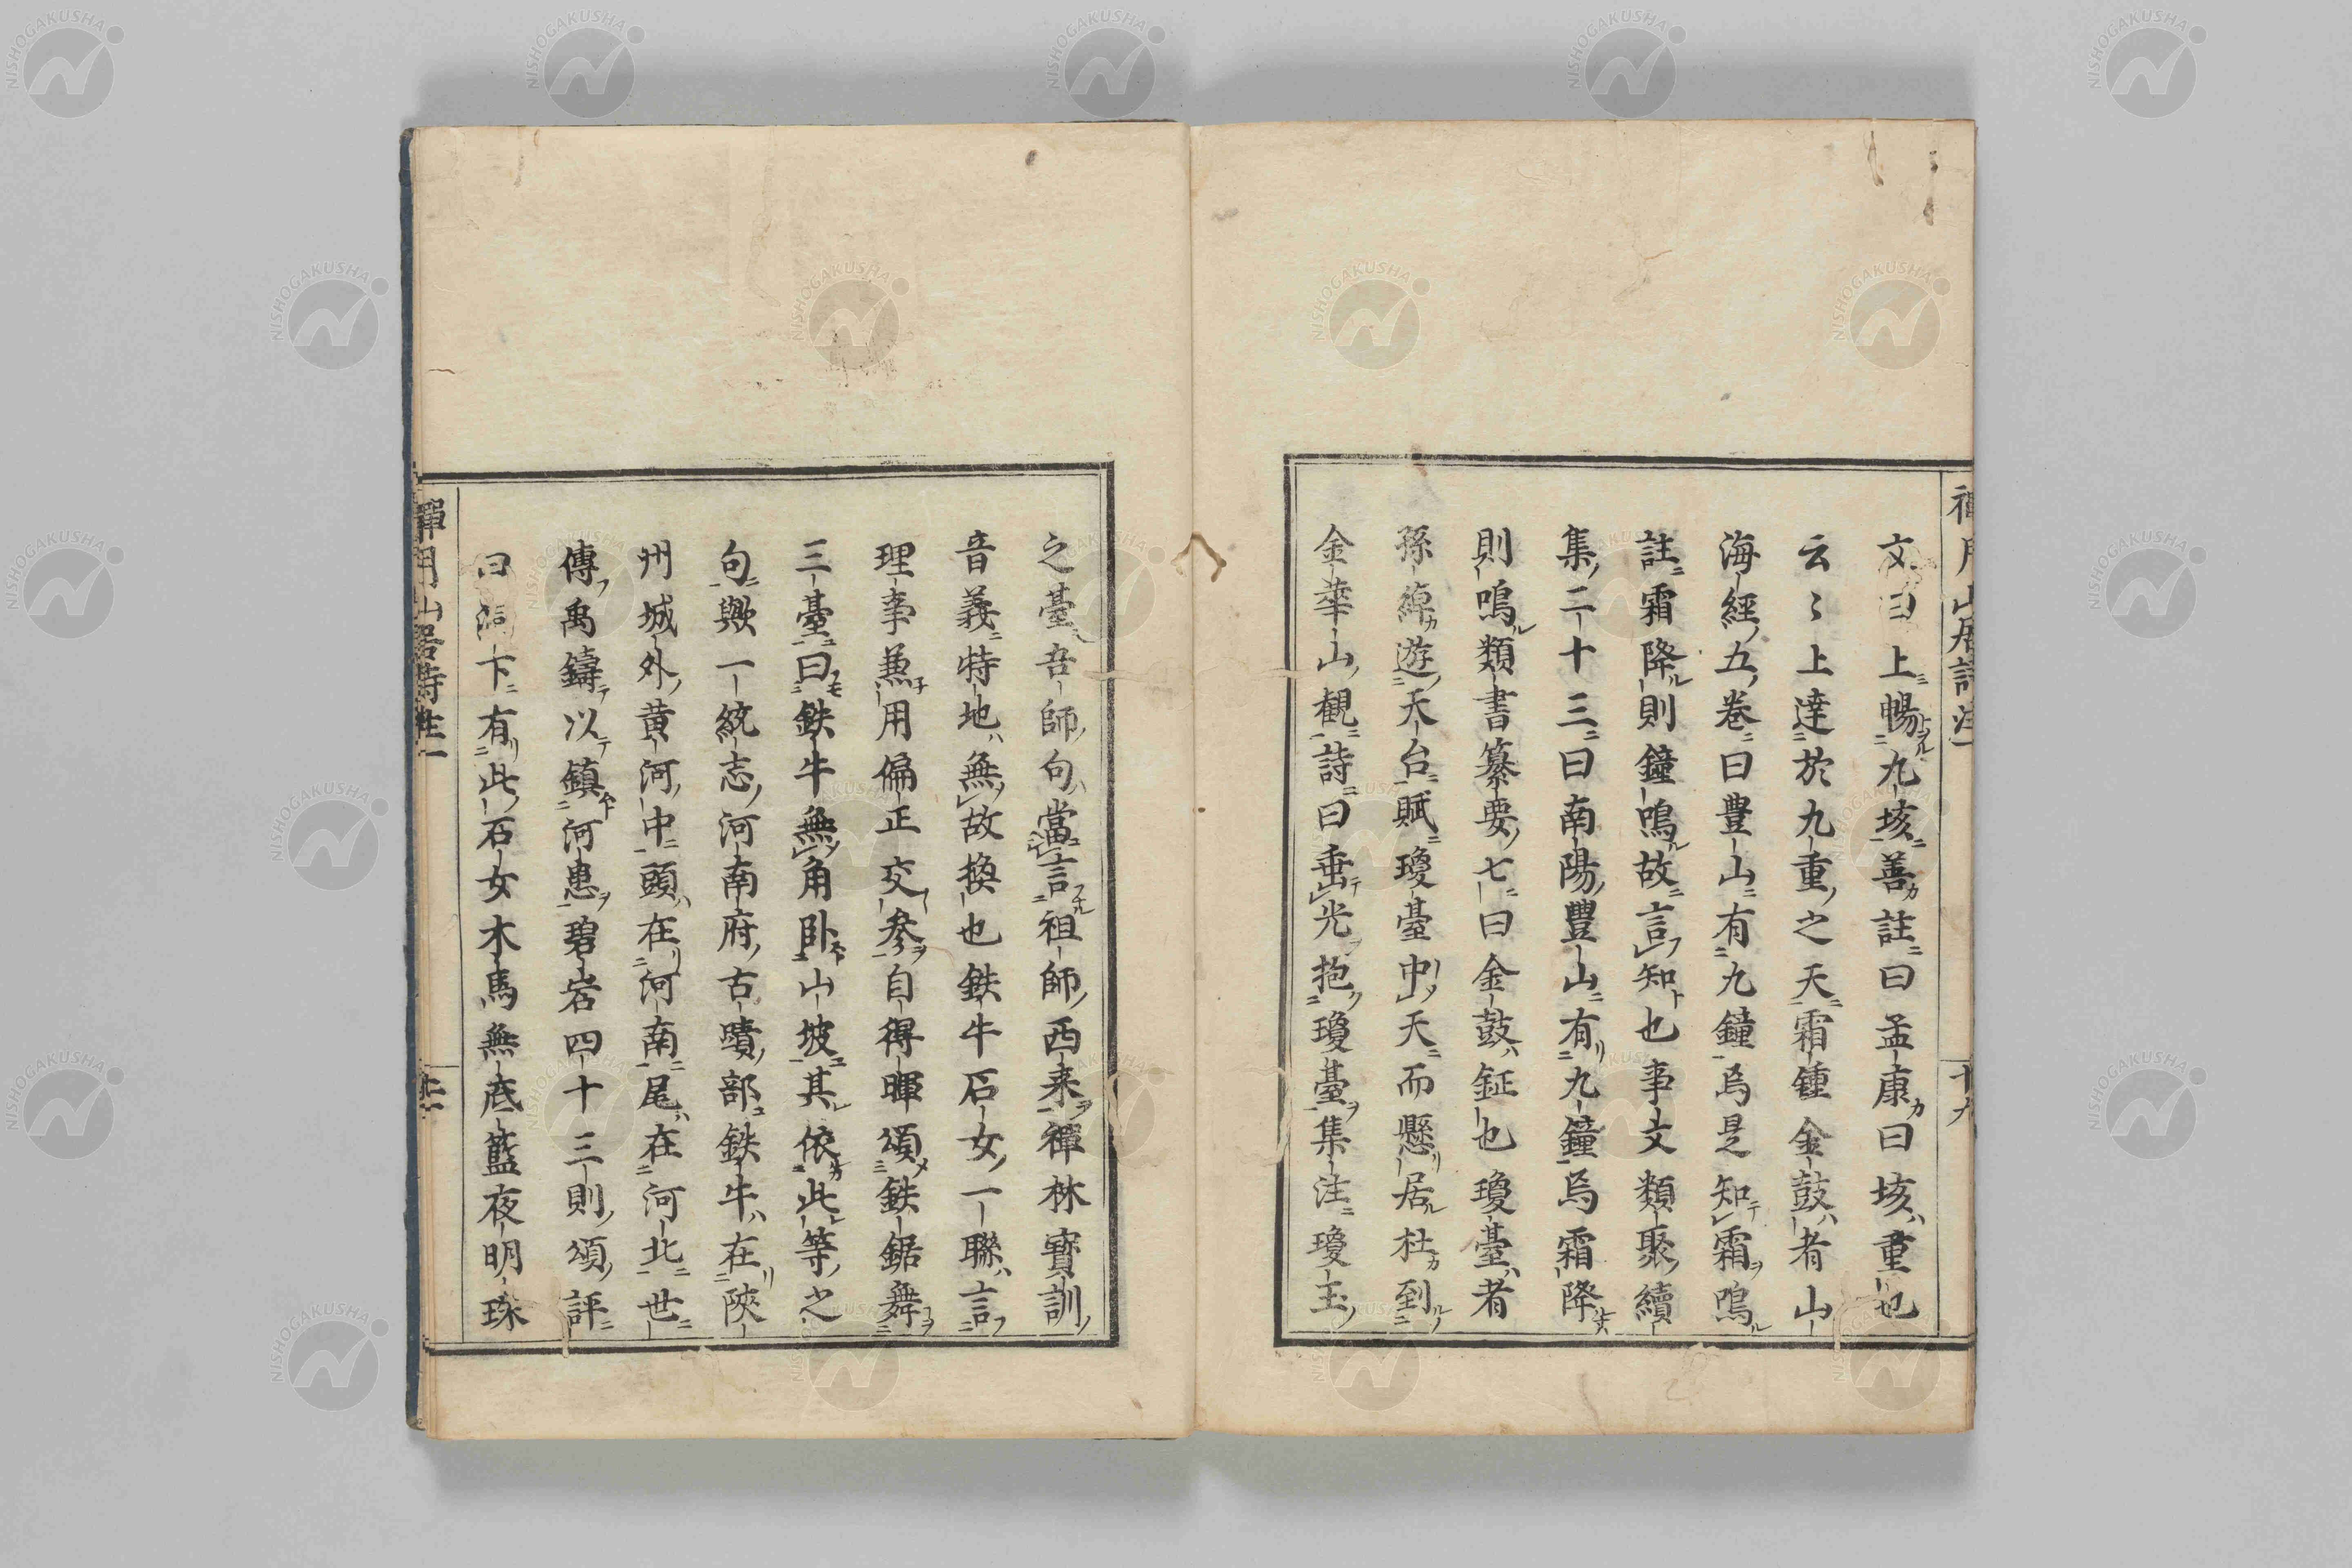 文曰上暢九垓善註曰孟康曰垓重也
云〻上達於九重之天霜鍾金鼓者山
海經五巻曰豊山有九鐘焉是知霜鳴
註霜降則鐘鳴故言知也事文類聚續
集二十三曰南陽豐山有九鐘焉霜降
則鳴類書纂要七曰金鼓鉦也瓊臺者
孫綽遊天台賦瓊臺中天而懸居杜到
金華山觀詩曰垂光抱瓊臺集注瓊玉
之臺吾師句當言祖師西来禅林寳訓
音義特地無故換也鉄牛石女一聯言
理事兼用偏正交參自得暉頌鉄鋸舞
三臺曰鉄牛無角卧山坡其依此等之
句歟一統志河南府古蹟部鉄牛在陝
州城外黄河中頭在河南尾在河北世
傳禹鑄以鎮河患碧岩四十三則頌評
曰洞下有此石女木馬無底籃夜明珠
禪月山居詩註一
十九
NISHOGAKUSHA